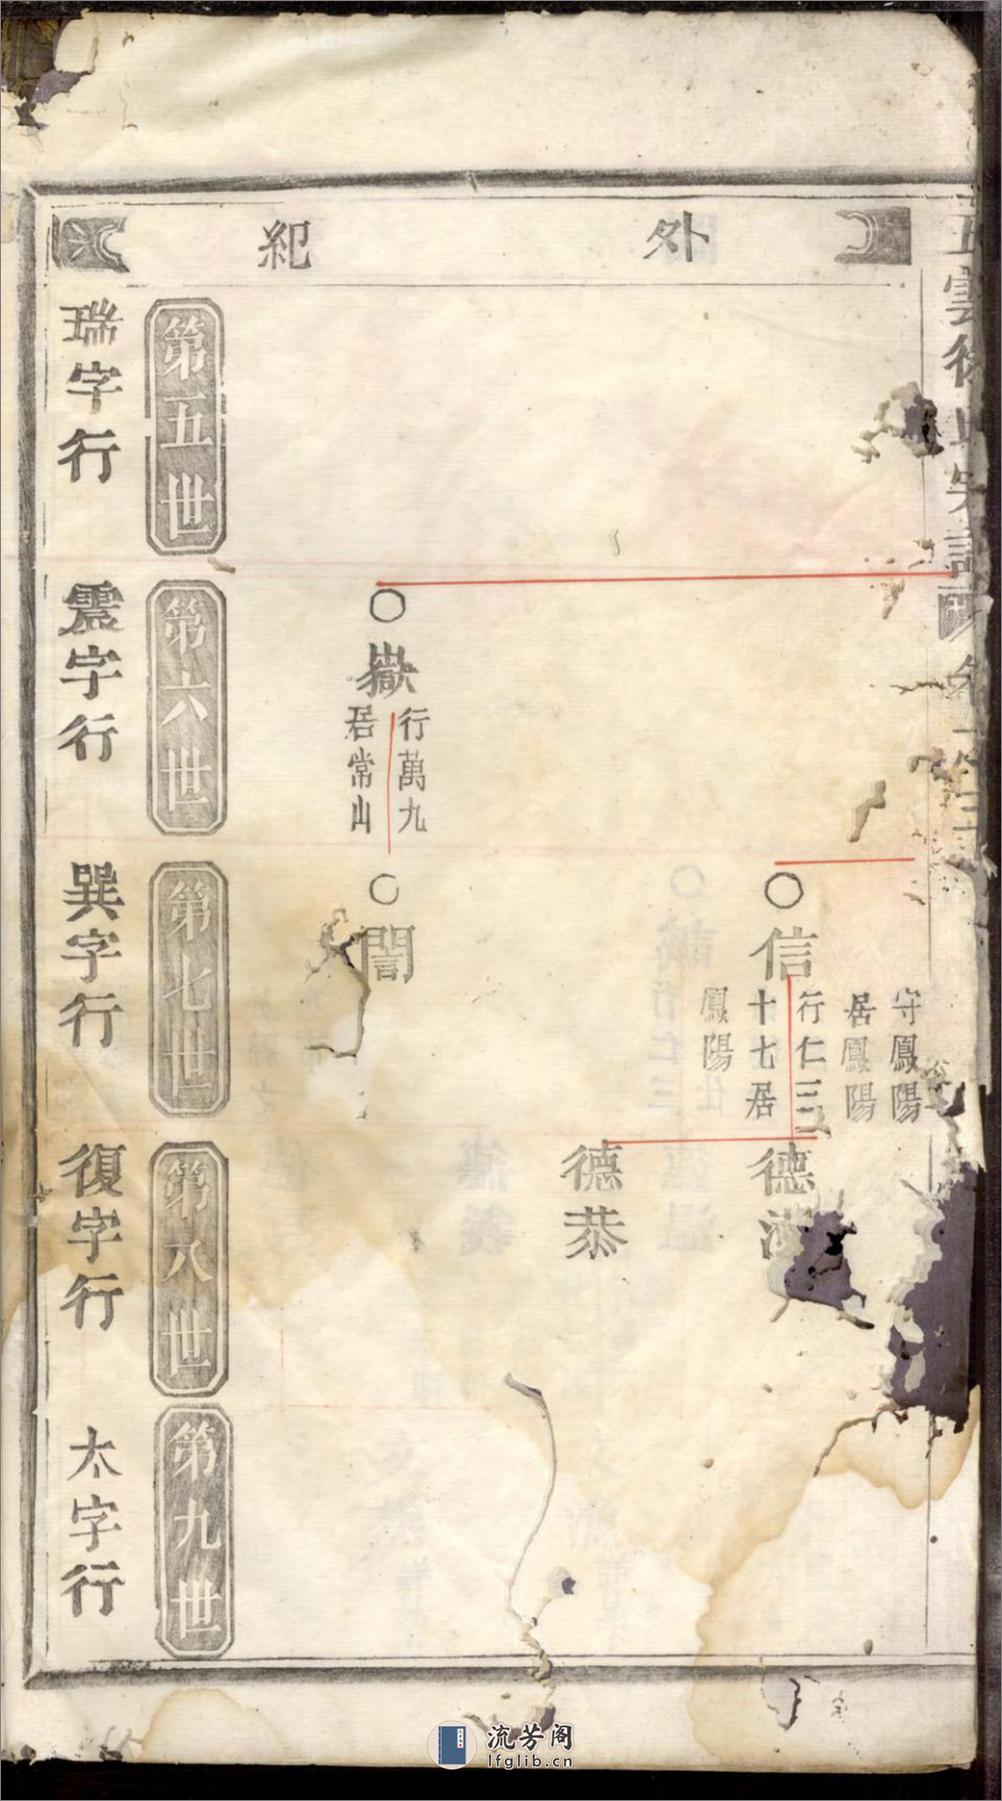 外紀
守鳳陽
居鳳陽
信
行仁三
十七居
鳳陽
德
德恭
嶽
行萬九
居常山
誾
第五世
第六世
第七世
第八世
第九世
瑞字行
震字行
巽字行
復字行
太字行
流芳阁
lfglib.cn